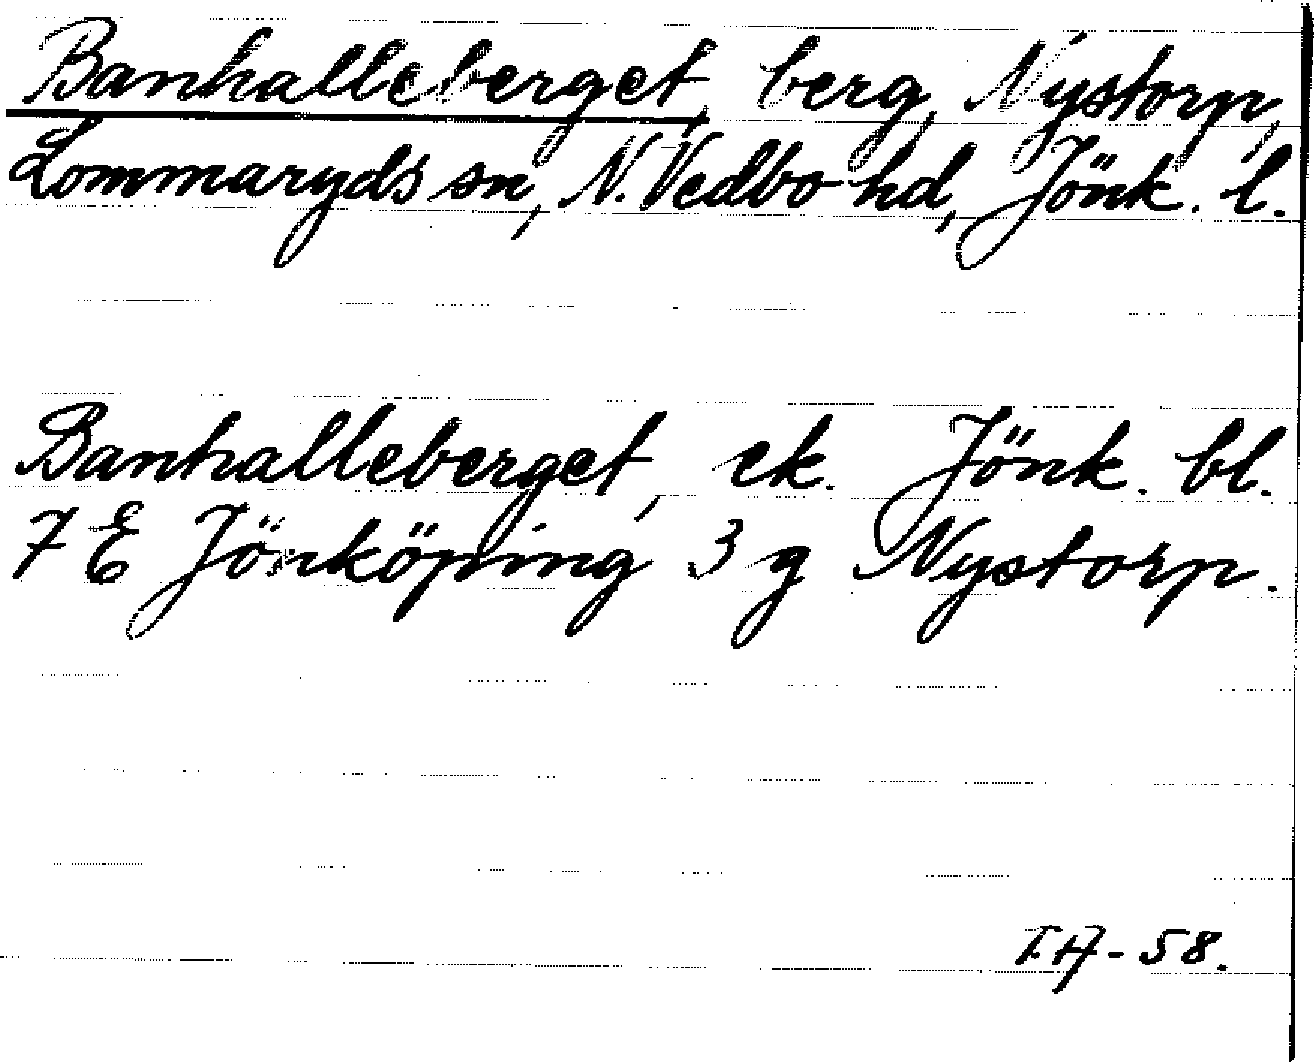 Banhalleberget, berg, Nystorp,
Lommaryds sn, N. Vedbo hd, Jönk. l.
Banhalleberget, ek. Jönk. bl.
7 E Jönköping 3 g Nystorp.
T.H-58.